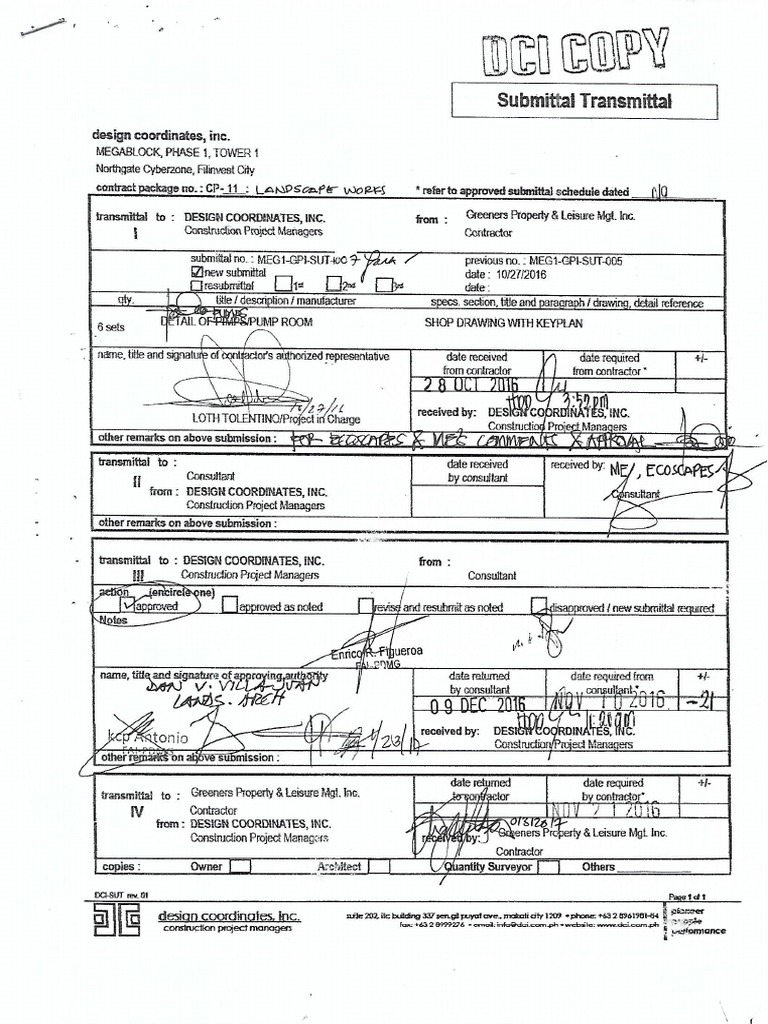 DCI COPY
Submittal Transmittal
design coordinates, inc.
MEGABLOCK, PHASE 1, TOWER 1
Northgate Cyberzone, Filinvest City
contract package no. : CP- 11 : LANDSCAPE WORKS * refer to approved submittal schedule dated
transmittal to : DESIGN COORDINATES, INC. from : Greeners Property & Leisure Mgt. Inc.
I Construction Project Managers Contractor
submittal no. : MEG1-GPI-SUT- previous no. : MEG1-GPI-SUT-005
new submittal date : 10/27/2016
resubmittal 1st 2nd 3rd date :
qty. title / description / manufacturer specs. section, title and paragraph / drawing, detail reference
6 sets DETAIL OF PUMP ROOM SHOP DRAWING WITH KEYPLAN
name, title and signature of contractor's authorized representative date received from contractor date required from contractor * +/-
28 OCT 2016 3:52 pm
10/27/16
LOTH TOLENTINO/Project in Charge received by: DESIGN COORDINATES, INC.
Construction Project Managers
other remarks on above submission : FOR ECOSCAPES & ME'S COMMENTS & APPROVAL
transmittal to : date received by consultant received by: ME, ECOSCAPES
II Consultant Consultant
from : DESIGN COORDINATES, INC.
Construction Project Managers
other remarks on above submission :
transmittal to : DESIGN COORDINATES, INC. from :
III Construction Project Managers Consultant
action (encircle one)
approved approved as noted revise and resubmit as noted disapproved / new submittal required
Notes
Enrico R. Figueroa
name, title and signature of approving authority date returned by consultant date required from consultant* +/-
DAN V. VILLA-JUAN
LANDS. ARCH 09 DEC 2016 NOV 18 2016 -21
kcp Antonio received by: DESIGN COORDINATES, INC.
Construction Project Managers
other remarks on above submission :
transmittal to : Greeners Property & Leisure Mgt. Inc. date returned to contractor date required by contractor* +/-
IV Contractor NOV 21 2016
from : DESIGN COORDINATES, INC. received by: Greeners Property & Leisure Mgt. Inc.
Construction Project Managers Contractor
copies : Owner Architect Quantity Surveyor Others
DCI-SUT rev. 01 Page 1 of 1
design coordinates, inc.
construction project managers
suite 202, itc building 337 sen.gil puyat ave., makati city 1209 • phone: +63 2 8961981-84
fax: +63 2 8999276 • email: info@dci.com.ph • website: www.dci.com.ph
pioneer
people
performance